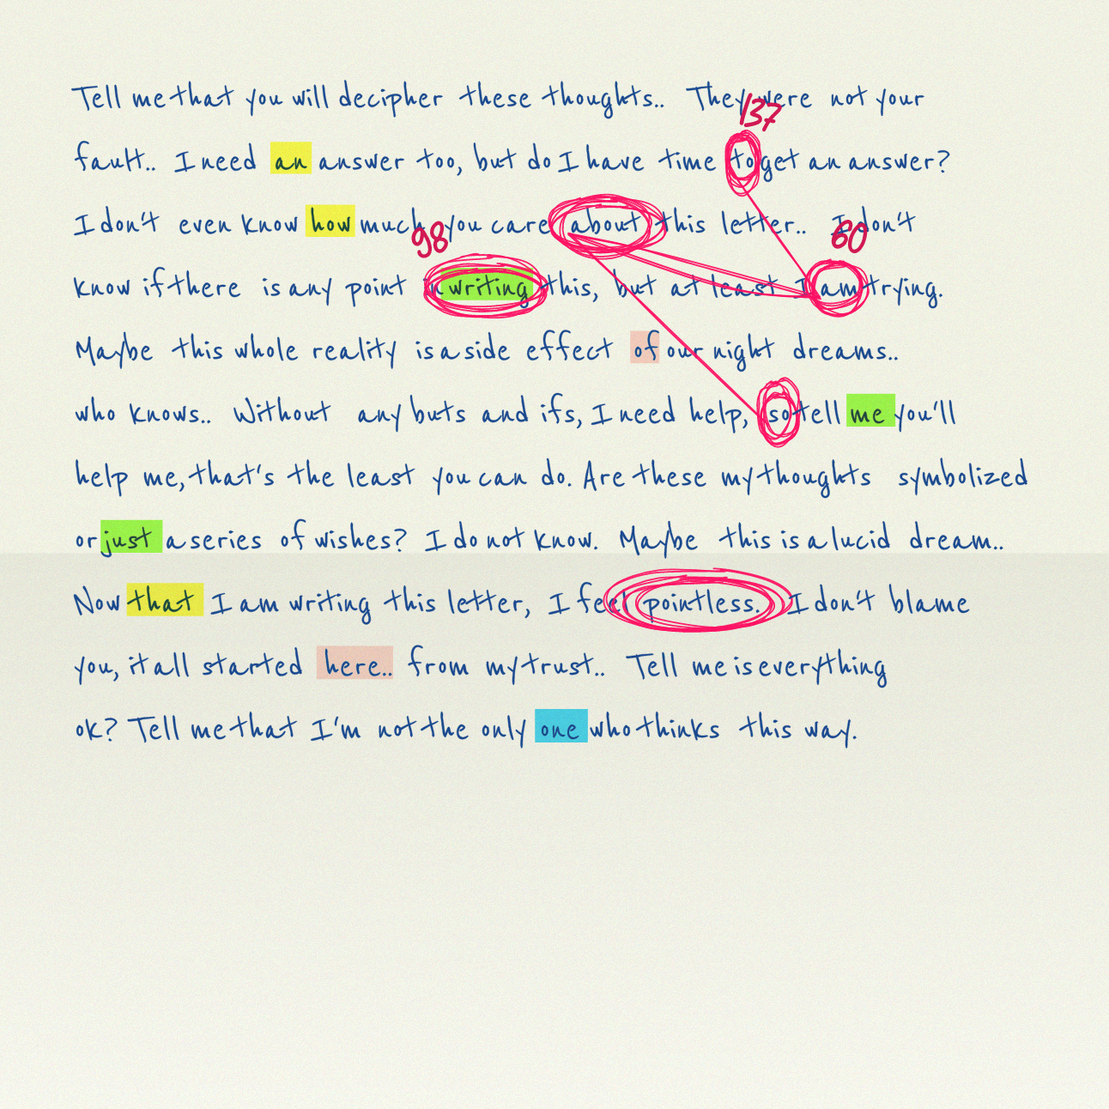 Tell me that you will decipher these thoughts.. They were not your
137
fault.. I need an answer too, but do I have time to get an answer?
I don't even know how much you care about this letter.. I don't
98 60
know if there is any point in writing this, but at least I am trying.
Maybe this whole reality is a side effect of our night dreams..
who knows.. Without any buts and ifs, I need help, so tell me you'll
help me, that's the least you can do. Are these my thoughts symbolized
or just a series of wishes? I do not know. Maybe this is a lucid dream..
Now that I am writing this letter, I feel pointless. I don't blame
you, it all started here.. from my trust.. Tell me is everything
ok? Tell me that I'm not the only one who thinks this way.